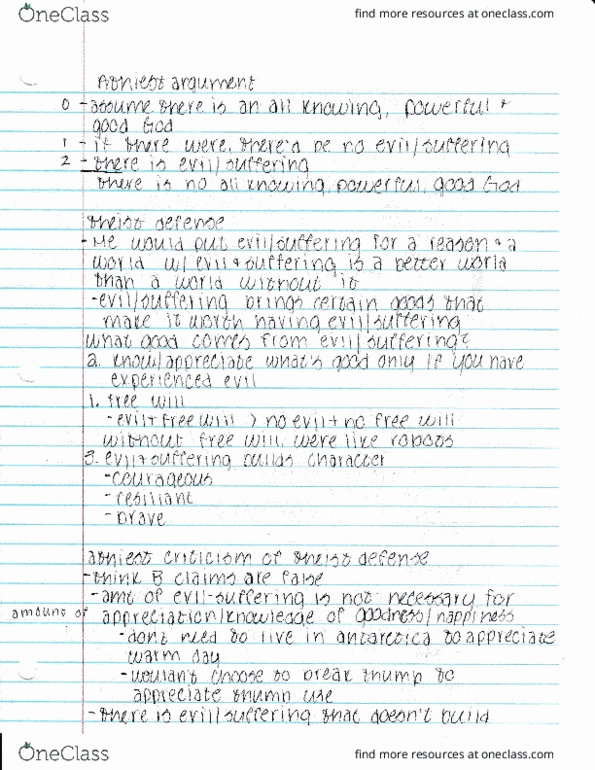 OneClass
find more resources at oneclass.com
Athiest argument
0 - assume there is an all knowing, powerful +
good God
1 - if there were, there'd be no evil/suffering
2 - there is evil/suffering
there is no all knowing, powerful, good God
theist defense
- He would put evil/suffering for a reason + a
world w/ evil + suffering is a better world
than a world without it
- evil/suffering brings certain goods that
make it worth having evil/suffering
what good comes from evil/suffering?
2. know/appreciate what's good only if you have
experienced evil
1. free will
- evil + free will > no evil + no free will
without free will, were like robots
3. evil + suffering builds character
- courageous
- resiliant
- brave
athiest criticism of theist defense
- think B claims are false
- amt of evil-suffering is not necessary for
amount of appreciation/knowledge of goodness/happiness
- dont need to live in antarctica to appreciate
warm day
- wouldn't choose to break thump to
appreciate thump use
- there is evil/suffering that doesn't build
OneClass
find more resources at oneclass.com